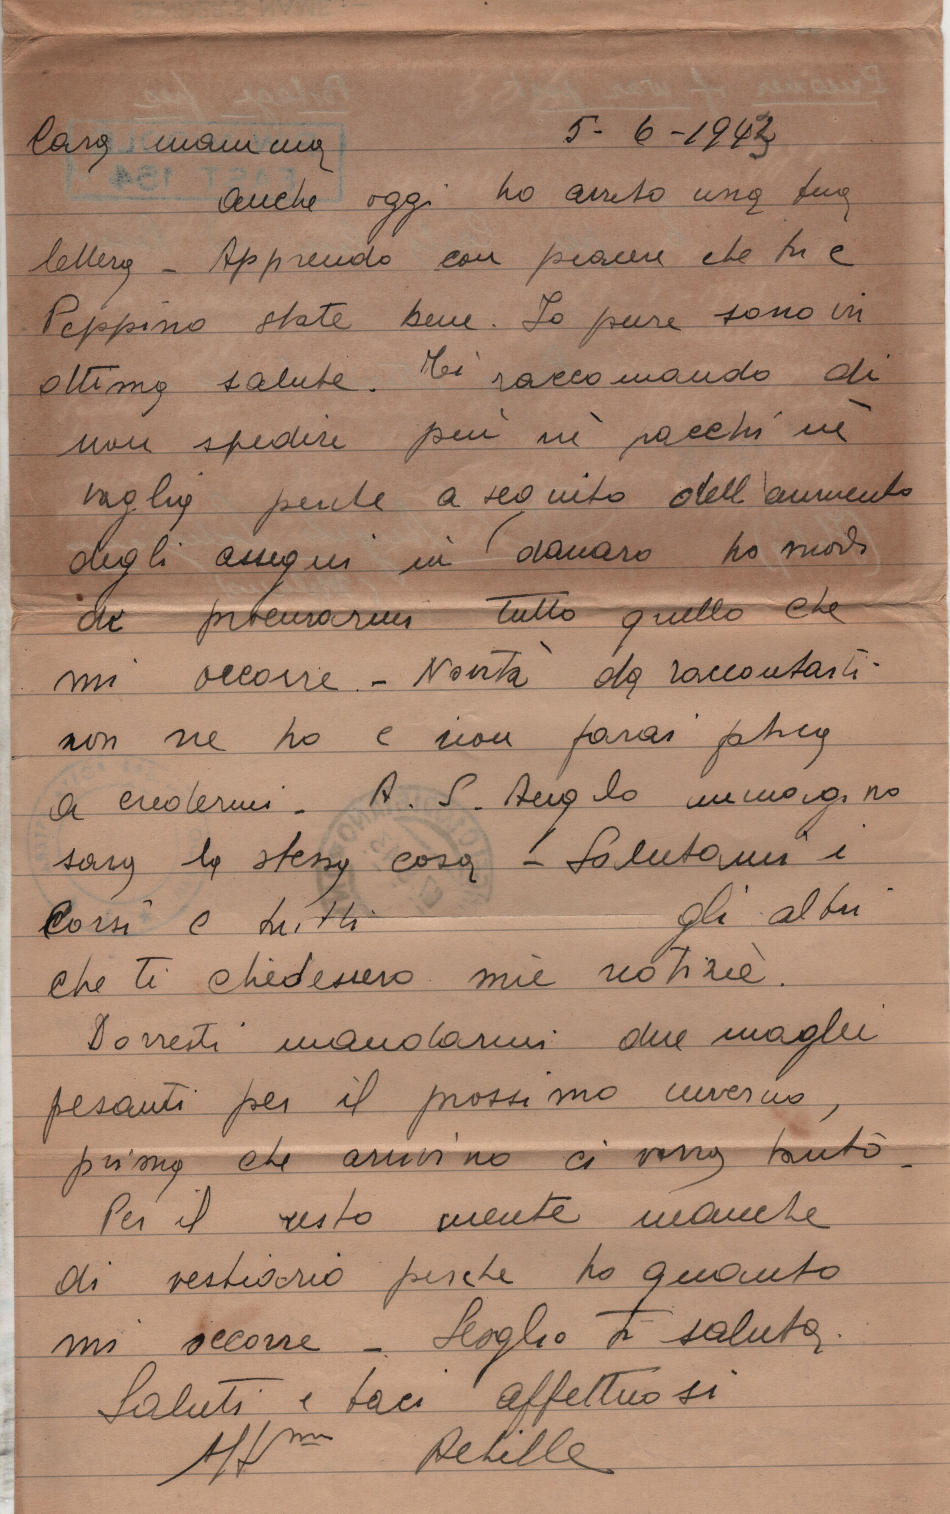 Cara mamma 5-6-1943
anche oggi ho avuto una tua
lettera - Apprendo con piacere che tu e
Peppino state bene. Io pure sono in
ottima salute. Mi raccomando di
non spedire più nè pacchi nè
vaglia perchè a seguito dell'aumento
degli assegni in danaro ho modo
di procurarmi tutto quello che
mi occorre - Novità da raccontarti
non ne ho e non farai fatica
a credermi - A S. Angelo immagino
sarà la stessa cosa - Salutami i
Corsi e tutti gli altri
che ti chiedessero mie notizie.
Dovresti mandarmi due maglie
pesanti per il prossimo inverno,
prima che arrivino ci vorrà tanto -
Per il resto niente neanche
di vestiario perchè ho quanto
mi occorre - Scoglio ti saluta.
Saluti e baci affettuosi
Aff.mo Achille